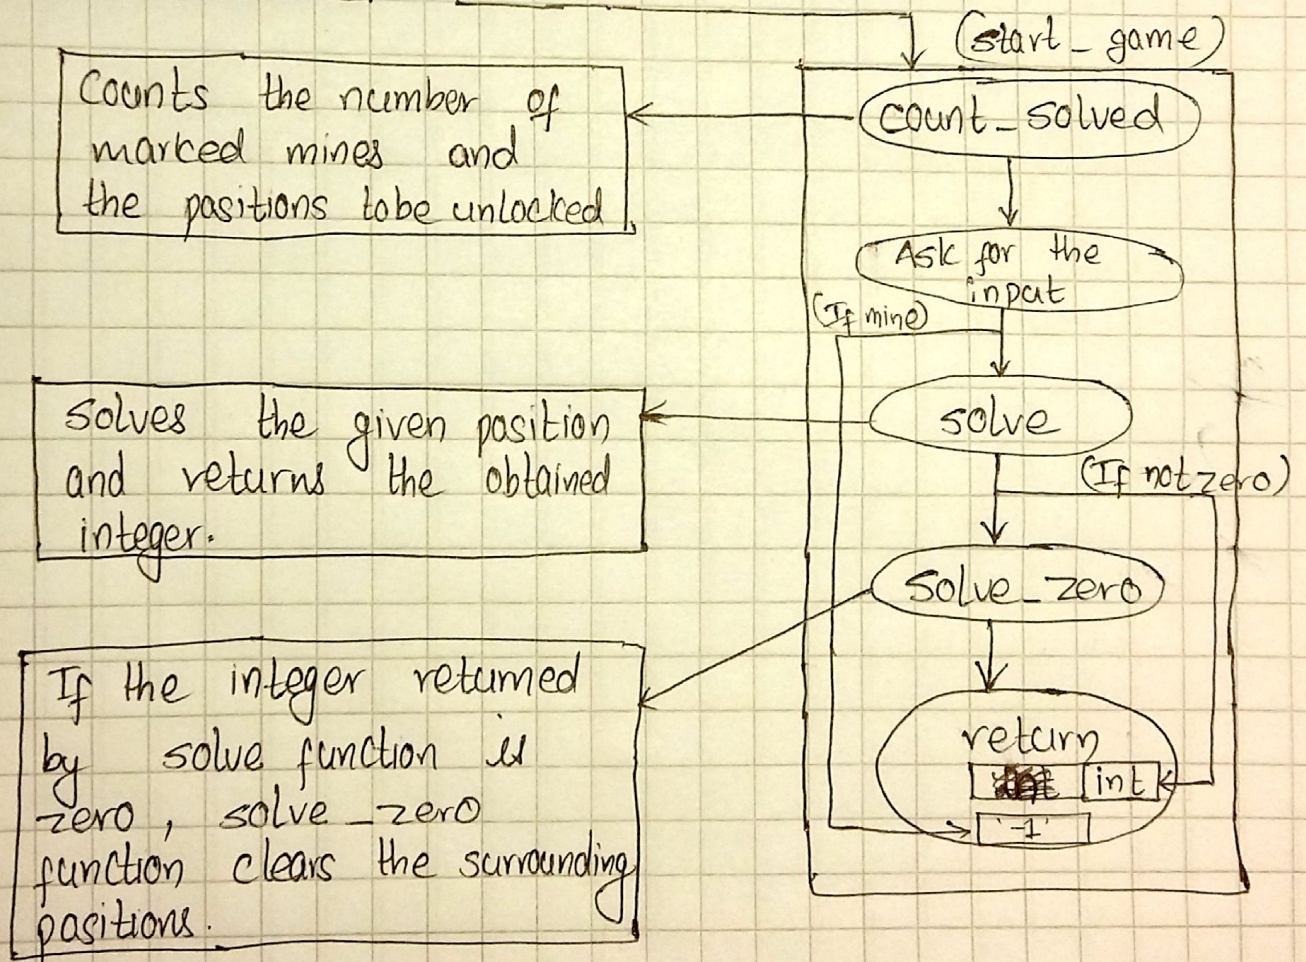 (start_game)
Counts the number of
marked mines and
the positions tobe unlocked
count_solved
Ask for the
input
(If mine)
solve
Solves the given position
and returns the obtained
integer.
(If not zero)
solve_zero
If the integer returned
by solve function is
zero, solve_zero
function clears the surrounding
positions.
return
int
'-1'